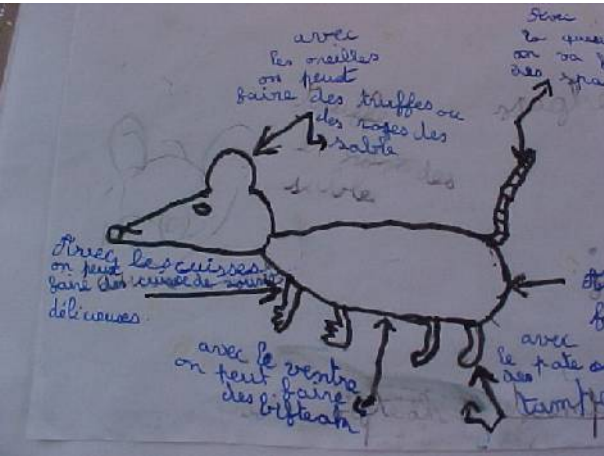 avec
les oreilles
on peut
faire des truffes ou
des roses des
sable
Avec
la queue
on va f
des spa
Avec les cuisses
on peut
faire des cuisse de souris
délicieuses.
avec le ventre
on peut faire
des bifteam
A
f
avec
le pate o
des
tamp